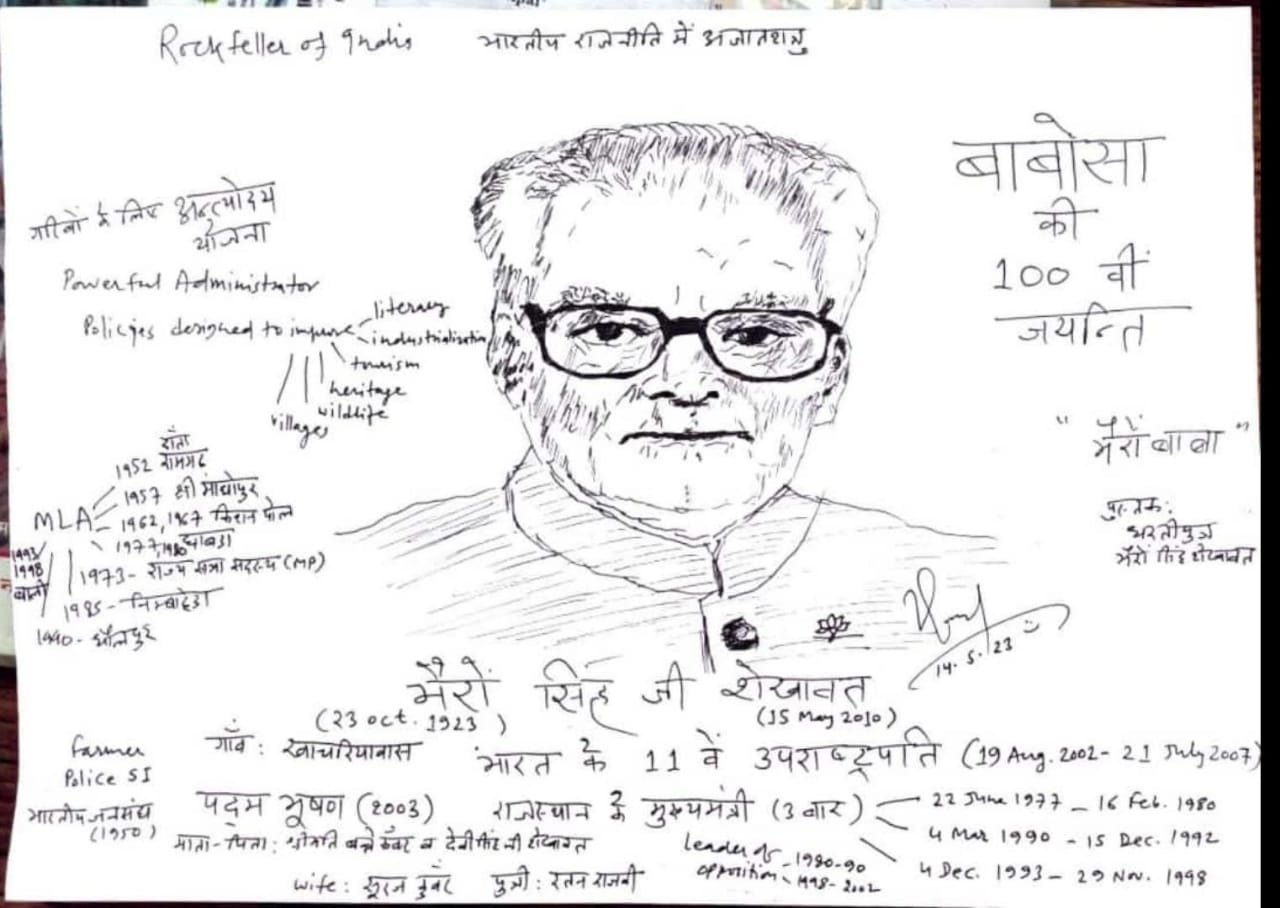 Rockfeller of India भारतीय राजनीति में अजातशत्रु
बाबोसा
की
100 वीं
जयन्ति
गरिबों के लिए अन्त्योदय
योजना
Powerful Administrator
Policies designed to improve
literacy
industrialization
tourism
heritage
wildlife
villages
"भैरों बाबा"
पुस्तक:
धरतीपुत्र
भैरों सिंह शेखावत
MLA
1952 दाँता
रामगढ
1957 श्री माधोपुर
1962, 1967 किशन पोल
1977, 1980 छाबडा
1973- राज्य सभा सदस्य (MP)
1985 - निम्बाहेडा
1990 - धौलपुर
1993/
1998
बाली
14.5.23
भैरों सिंह जी शेखावत
(23 oct. 1923) (15 May 2010)
Farmer
Police SI
भारतीय जनसंघ
(1950)
गाँव: खाचरियावास भारत के 11 वें उपराष्ट्रपति (19 Aug. 2002- 21 July 2007)
पदम भूषण (2003) राजस्थान के मुख्यमंत्री (3 बार)
22 June 1977 - 16 Feb. 1980
4 Mar 1990 - 15 Dec. 1992
4 Dec. 1993 - 29 Nov. 1998
माता-पिता: श्रीमति बन्ने कँवर व देवीसिंह जी शेखावत
Leader of
opposition
1980-90
1998-2002
wife: सूरज कुंवर पुत्री: रतन राजवी